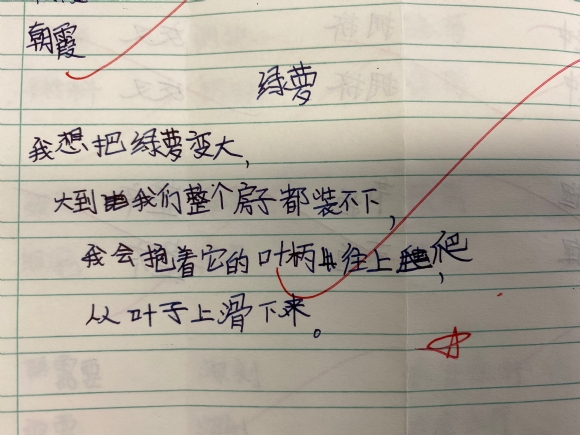 朝霞
绿萝
我想把绿萝变大，
大到我们整个房子都装不下，
我会抱着它的叶柄往上爬，
从叶子上滑下来。